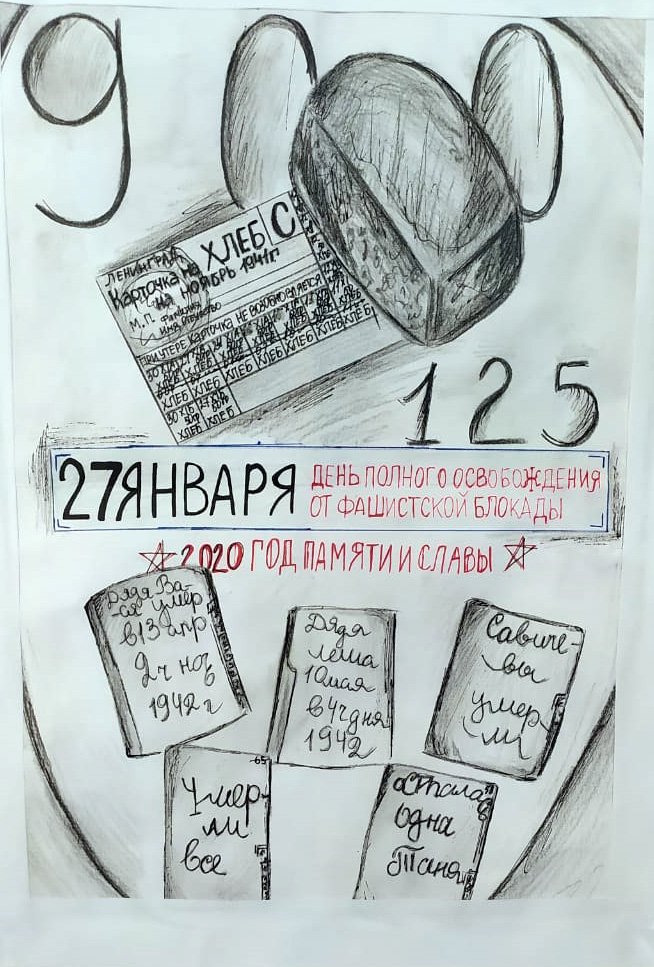 900
ЛЕНИНГРАД
Карточка на ХЛЕБ С
на НОЯБРЬ 1941г
М.П. Фамилия
имя отчество
ПРИ УТЕРЕ КАРТОЧКА НЕ ВОЗОБНОВЛЯЕТСЯ
ХЛЕБ ХЛЕБ ХЛЕБ ХЛЕБ ХЛЕБ
ХЛЕБ ХЛЕБ
ХЛЕБ ХЛЕБ
125
27 ЯНВАРЯ
ДЕНЬ ПОЛНОГО ОСВОБОЖДЕНИЯ
ОТ ФАШИСТСКОЙ БЛОКАДЫ
2020 ГОД ПАМЯТИ И СЛАВЫ
Дядя Ва-
-ся умер
в 13 апр
2 ч ноч
1942 г
Дядя
Леша
10 мая
в 4ч дня
1942
Савиче-
-вы
умер-
-ли
Умер-
ли
все
Осталась
одна
Таня